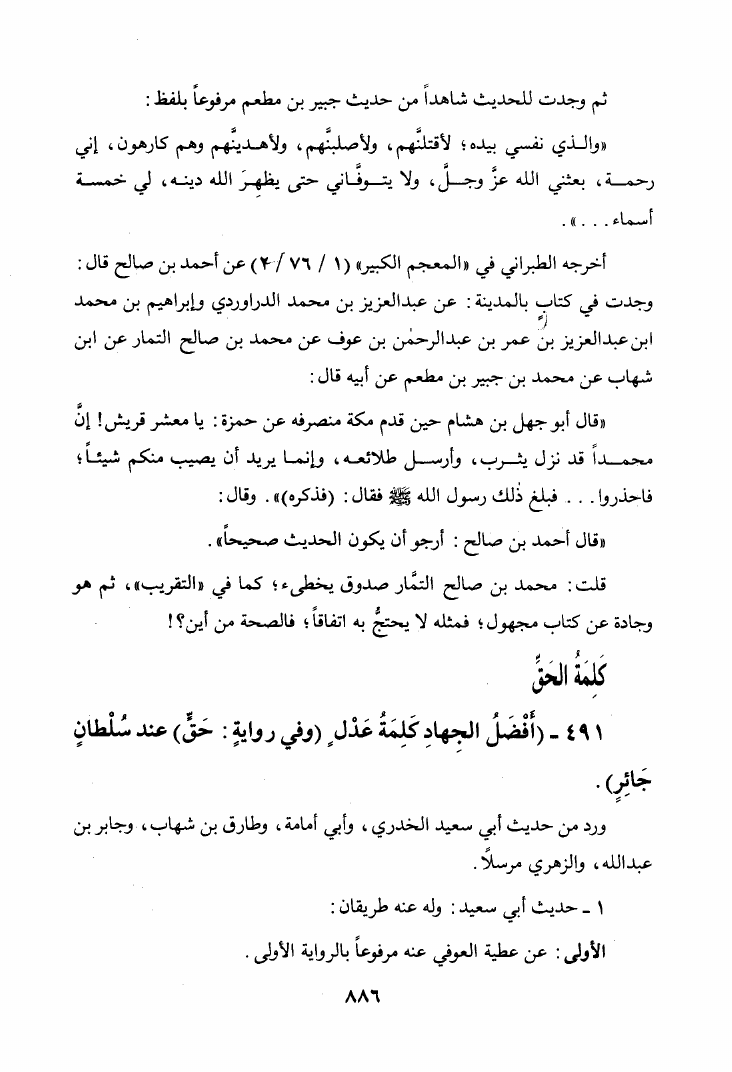 ثم وجدت للحديث شاهداً من حديث جبير بن مطعم مرفوعاً بلفظ:
«والذي نفسي بيده؛ لأقتلنَّهم، ولأصلبنَّهم، ولأهدينَّهم وهم كارهون، إني
رحمة، بعثني الله عزَّ وجلَّ، ولا يتوفَّاني حتى يظهِرَ الله دينه، لي خمسة
أسماء...».
أخرجه الطبراني في «المعجم الكبير» (١ / ٧٦ / ٢) عن أحمد بن صالح قال:
وجدت في كتاب بالمدينة: عن عبدالعزيز بن محمد الدراوردي وإبراهيم بن محمد
ابن عبدالعزيز بن عمر بن عبدالرحمٰن بن عوف عن محمد بن صالح التمار عن ابن
شهاب عن محمد بن جبير بن مطعم عن أبيه قال:
«قال أبو جهل بن هشام حين قدم مكة منصرفه عن حمزة: يا معشر قريش! إنَّ
محمداً قد نزل يثرب، وأرسل طلائعه، وإنما يريد أن يصيب منكم شيئاً؛
فاحذروا... فبلغ ذٰلك رسول الله ﷺ فقال: (فذكره)». وقال:
«قال أحمد بن صالح: أرجو أن يكون الحديث صحيحاً».
قلت: محمد بن صالح التمَّار صدوق يخطىء؛ كما في «التقريب»، ثم هو
وجادة عن كتاب مجهول؛ فمثله لا يحتجُّ به اتفاقاً؛ فالصحة من أين؟!
كَلِمَةُ الحَقِّ
٤٩١ - (أَفْضَلُ الجِهادِ كَلِمَةُ عَدْلٍ (وفي روايةٍ: حَقٍّ) عند سُلْطانٍ
جَائِرٍ).
ورد من حديث أبي سعيد الخدري، وأبي أمامة، وطارق بن شهاب، وجابر بن
عبدالله، والزهري مرسلاً.
١ - حديث أبي سعيد: وله عنه طريقان:
الأولى: عن عطية العوفي عنه مرفوعاً بالرواية الأولى.
٨٨٦